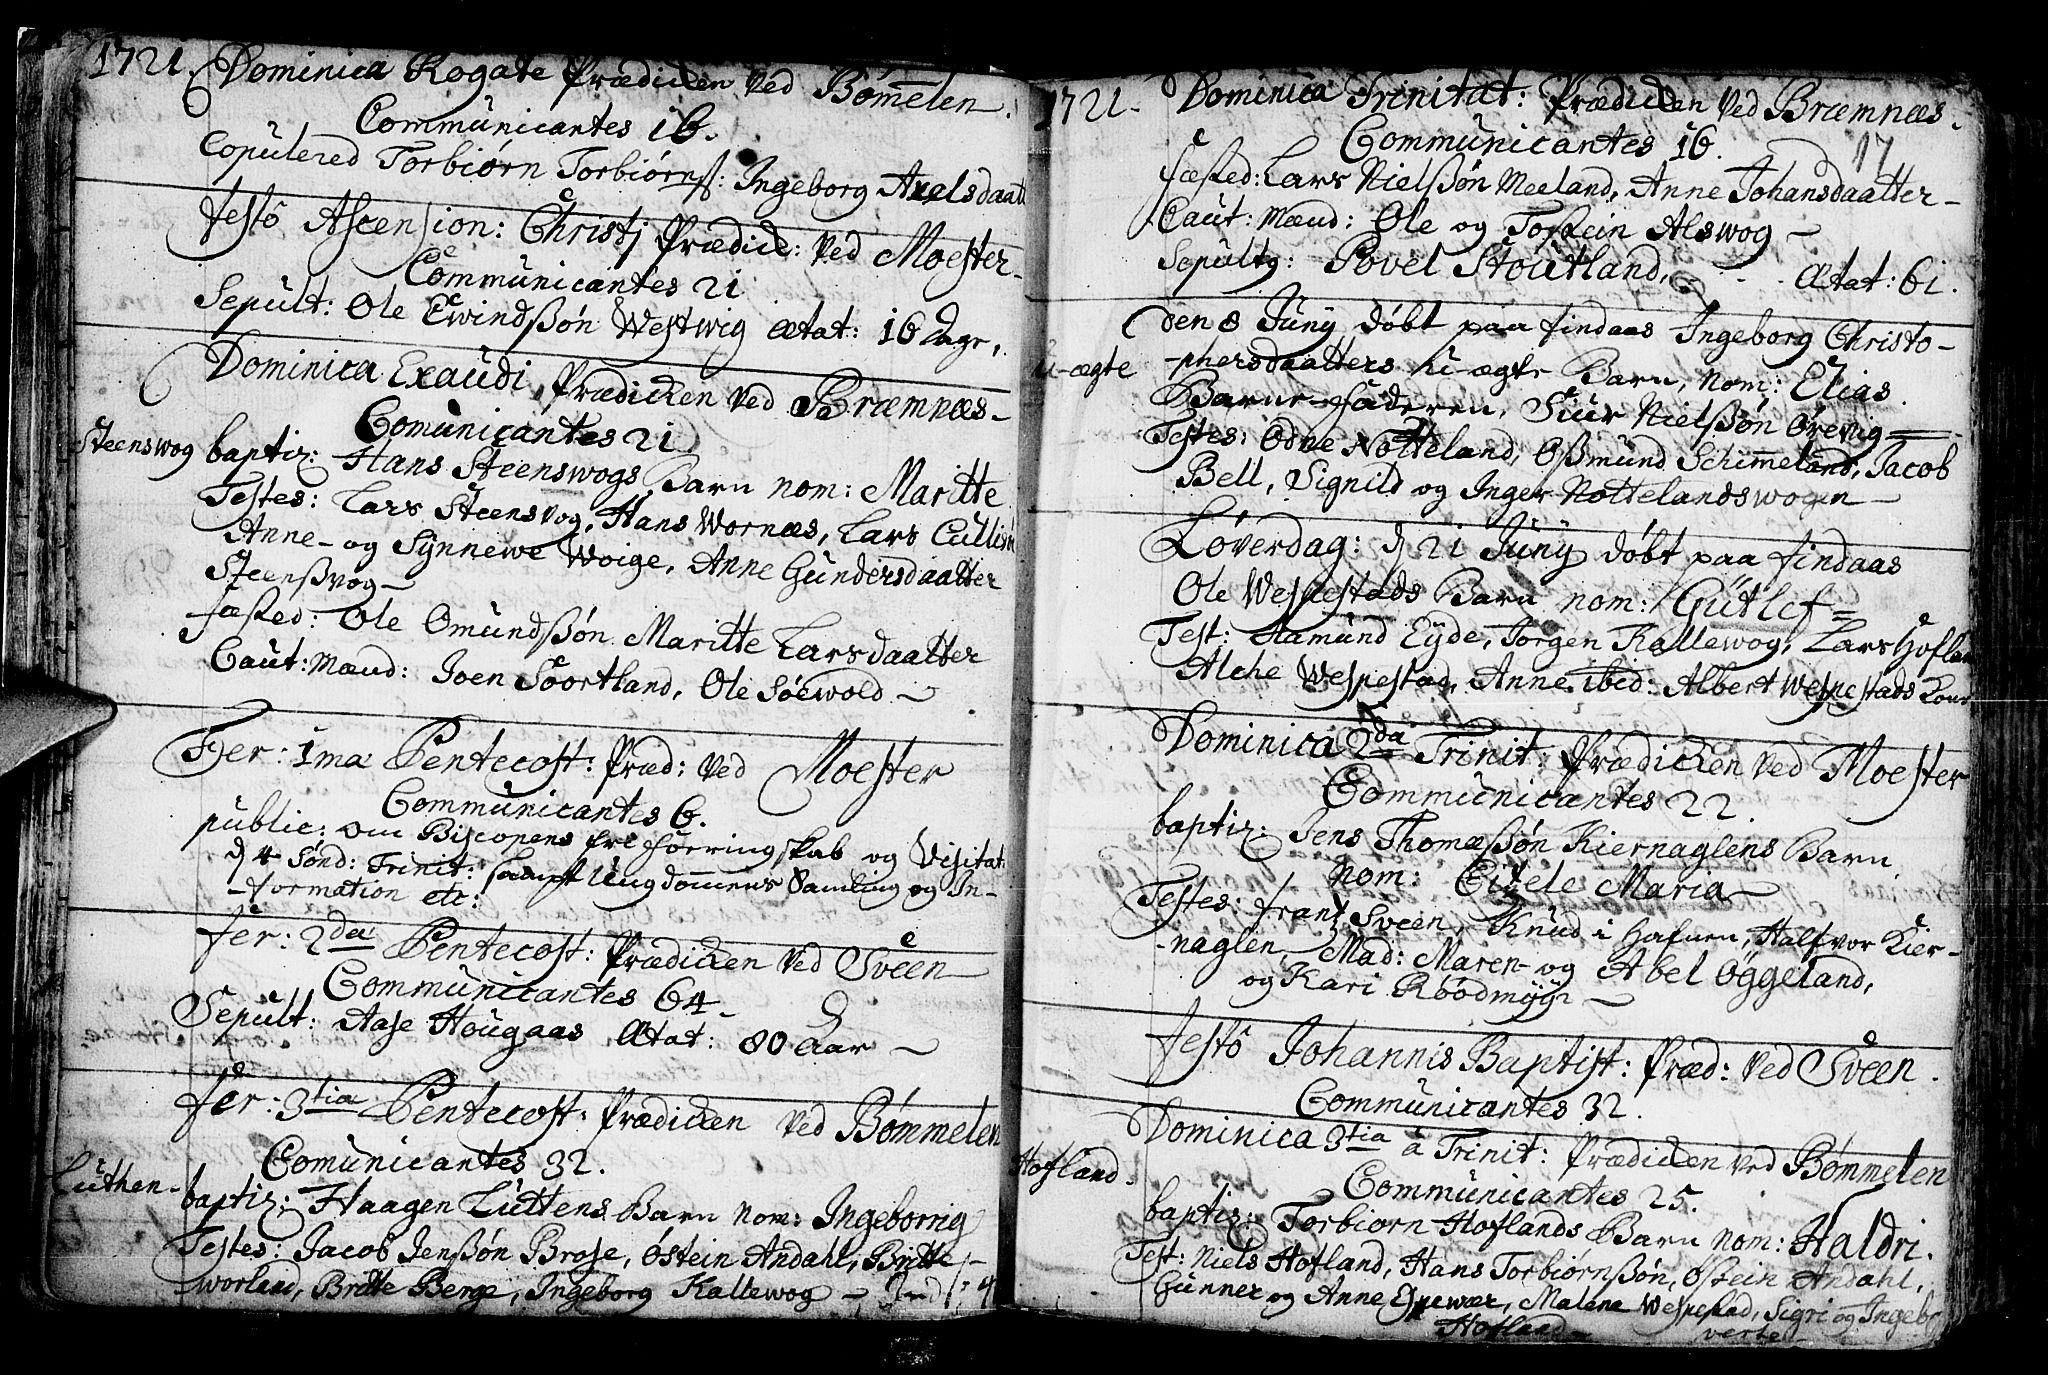 1721. Dominica Rogate Prædicken Ved Bømelen.
Communicantes 16.
Copulered Torbiørn Torbiørnß: Ingeborg Axelsdaatt
Festo Ascension: Christi Prædick: Ved Moester
Communicantes 21
Sepult: Ole Ewindßøn Westwig ætat: 16 Dage,
Dominica Exaudi, Prædicken Ved Bræmnæs
Comunicantes 21
Steenswog baptiz: Hans Steenswogs Barn nom: Maritte
Testes: Lars Steensvog, Hans Wornæs, Lars
Anne- og Synnewe Woige, Anne Gundersdaatter
Steenßvog
Fæsted: Ole Omundßøn Maritte Larsdaatter
Caut: Mænd: Joen Soortland, Ole Søewold
Fer: 1ma Pentecost: Præd: Ved Moester
Communicantes 6.
public: om Biscopens fre Visitat:
d 4 Sønd: Trinit: sampt Ungdommens Samling og In-
-formation etc:
Fer: 2da Pentecost: Prædicken Ved Sveen
Communicantes 64
Sepult: Aase Hougaas Ætat: 80 Aar
Fer: 3tia Pentecost: Prædicken Ved Bømmelen
Comunicantes 32.
Luthen- baptiz: Haagen Luttens Barn nom: Ingeborrig
Testes: Jacob Jenßøn Brose, Østein Andahl, Britte
worland, Britte Berge, Ingeborg Kallewog
1721- Dominica Trinitat: Prædicken Ved Bræmnæs.
17
Communicantes 16.
Fæsted: Lars Nielßøn Meeland, Anne Johansdaatter
Caut: Mænd: Ole og Tostein Alswog
Sepultg: Povel Stoutland, Ætat: 61.
Den 8 Juny døbt paa Findaas Ingeborg Christo-
U-ægte -phersdaatters U-ægte Barn, nom: Elias.
Barne-Faderen, Siur Nielßøn Ørevig
Testes: Odne Notteland, Oßmund Schimeland, Jacob
Bell, Signild og Inger Nottelandswogen
Løverdag: d 21 Juny døbt paa Findaas
Ole Wespestads Barn nom: Gutlef
Test: Aamund Eyde, Jørgen Kallewog, Lars Hoflan
Alche Wespestad, Anne ibid: Albert Wespestads Kone
Dominica 2da Trinit: Prædicken Ved Moester
Communicantes 22.
baptiz: Jens Thomæßøn Kiernaglens Barn
Nom: Citzele Maria
Testes: Frantz Sveen, Knud i Hafnen, Halfvor Kier-
-naglen, Mad: Maren- og Abel Oggeland,
og Kari Røødmyyr
Festo Johannis Baptist: Præd: Ved Sveen.
Communicantes 32.
Dominica 3tia à Trinit: Prædicken Ved Bømmelen
Communicantes 25.
Hofland. baptiz: Torbiørn Hoflands Barn nom: Haldri.
Test: Niels Hofland, Hans Torbiørnßøn, Østein Andahl,
Gunner og Anne Espewær, Malene Wespestad, Sigri og Ingeb
Hofland verte